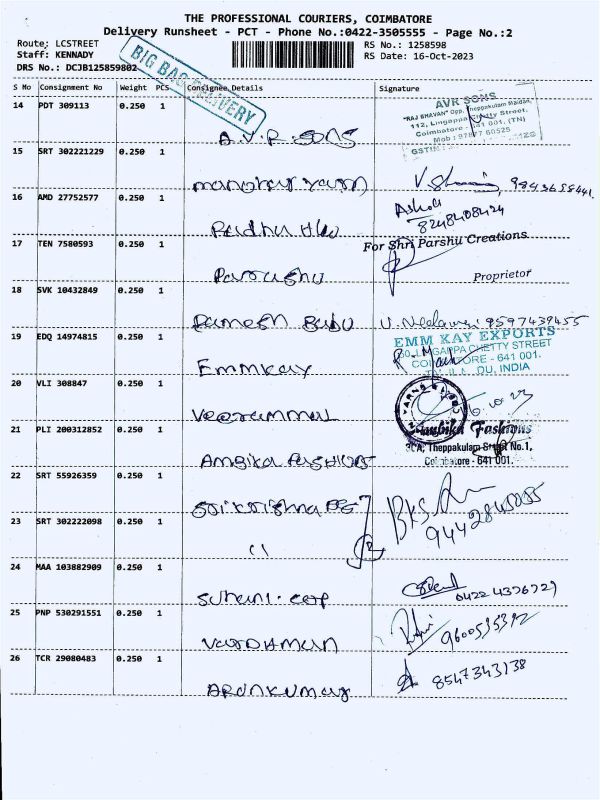 THE PROFESSIONAL COURIERS, COIMBATORE
Delivery Runsheet - PCT - Phone No.:0422-3505555 - Page No.:2
Route: LCSTREET
RS No.: 1258598
Staff: KENNADY
RS Date: 16-Oct-2023
DRS No.: DCJB125859802
BIG BAG DELIVERY
S No Consignment No Weight PCS Consignee Details Signature
14 PDT 309113 0.250 1
A.V.R. SONS
AVR SONS
"RAJ BHAVAN" Opp. Theppakulam Maidan,
112, Lingappa Chetty Street,
Coimbatore - 641 001. (TN)
Mob : 97877 60525
15 SRT 302221229 0.250 1
manohar yarn
16 AMD 27752577 0.250 1
8248408424
17 TEN 7580593 0.250 1
For Shri Parshu Creations
Proprietor
18 SVK 10432849 0.250 1
Ramesh Babu
9597439455
19 EDQ 14974815 0.250 1
Emmkay
EMM KAY EXPORTS
LINGAPPA CHETTY STREET
COIMBATORE - 641 001.
INDIA
20 VLI 308847 0.250 1
Veerammal
21 PLI 200312852 0.250 1
Ambika Fashions
Ambika Fashions
Theppakulam Street No.1,
Coimbatore - 641 001.
22 SRT 55926359 0.250 1
23 SRT 302222098 0.250 1
24 MAA 103882909 0.250 1
25 PNP 530291551 0.250 1
Vardhaman
26 TCR 29080483 0.250 1
Arunkumar
8547343138